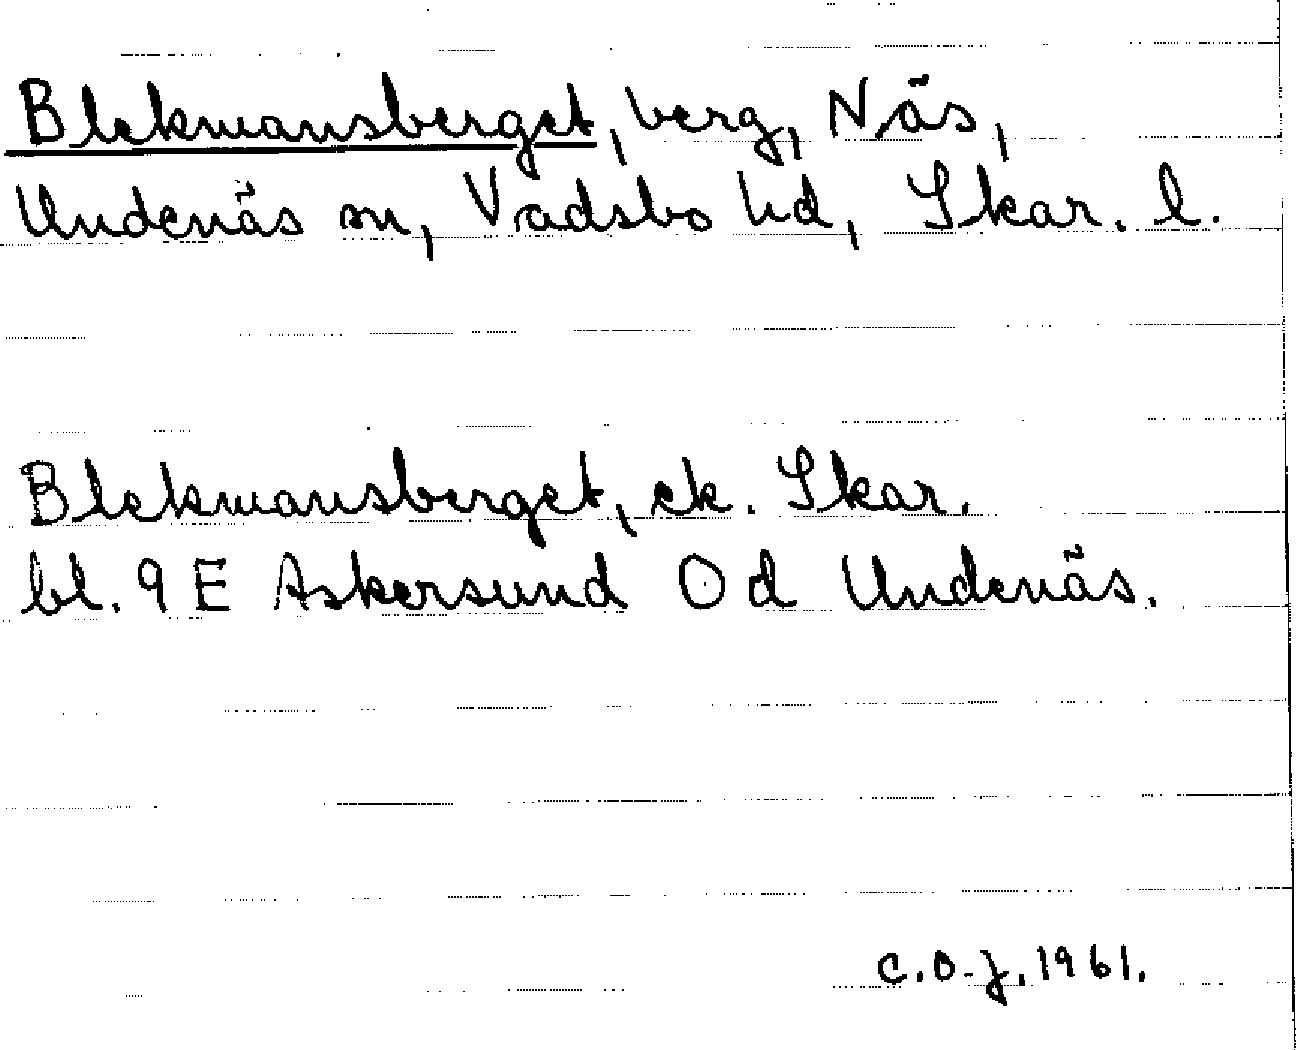 Blekmansberget, berg, Näs,
Undenäs sn, Vadsbo hd, Skar. l.
Blekmansberget, ek. Skar.
bl. 9 E Askersund O d Undenäs.
C.O-J. 1961.